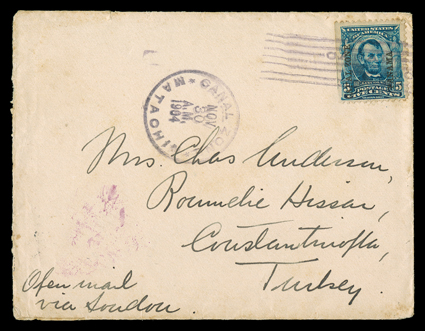 UNITED STATES
CANAL ZONE
PANAMA
5 POSTAGE 5
CENTS
CANAL ZONE
NOV
30
A.M.
1904
MATACHIN
Mrs. Chas Anderson,
Roumelie Hissar,
Constantinople,
Turkey.
Open mail
via London.